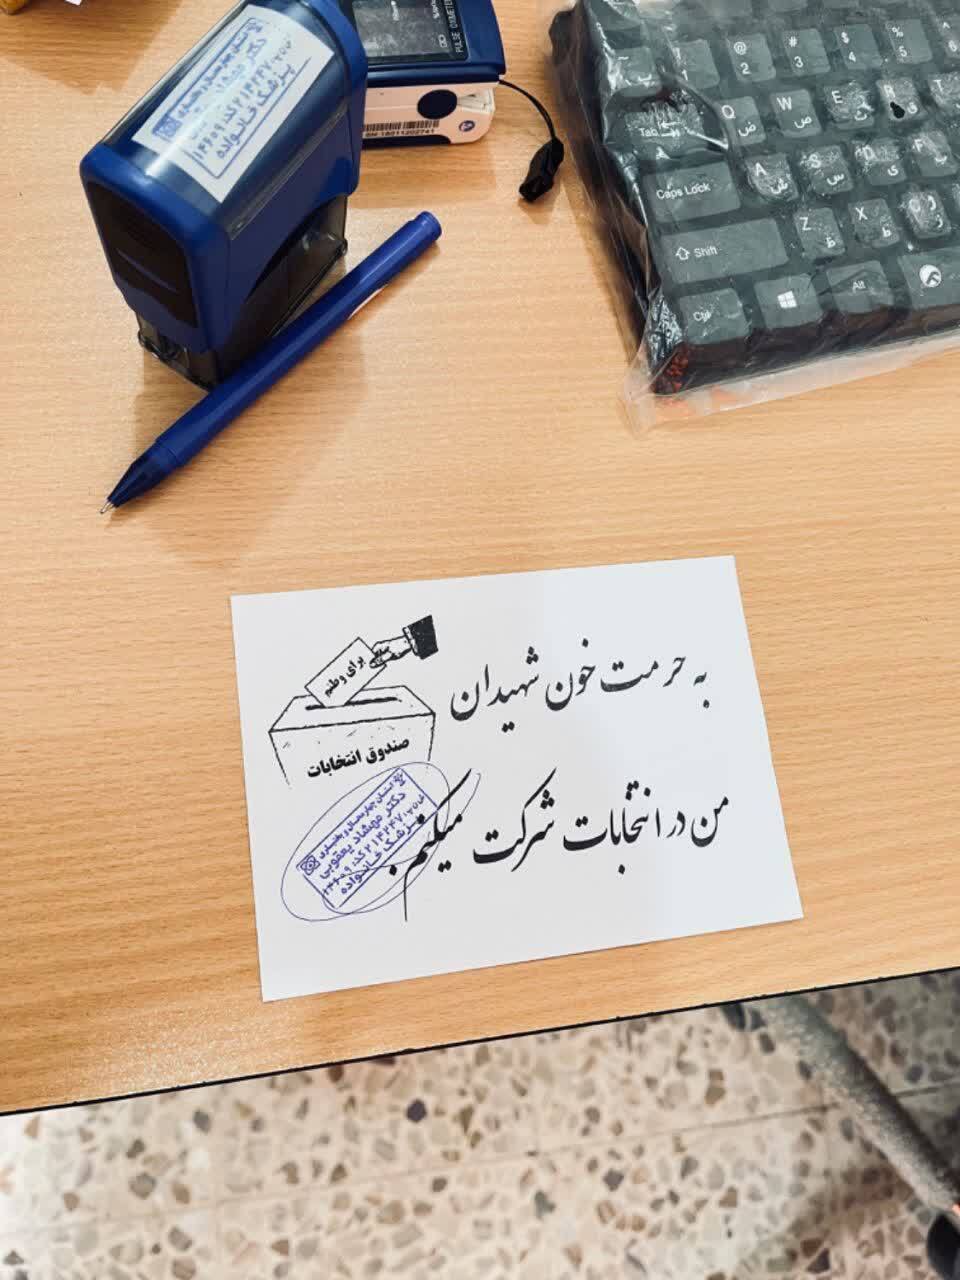 PULSE OXIMETER
SN:18011202741
~
! 1
@ 2
# 3
$ 4
% 5
Tab
Q ض
W ص
E ث
R ق
T
Caps Lock
A ش
S س
D ی
F ب
Shift
Z ظ
X ط
Ctrl
Alt
پزشک خانواده
برای وطنم
صندوق انتخابات
به حرمت خون شهیدان
من در انتخابات شرکت میکنم.
استان چهارمحال و بختیاری
دکتر مهشاد یعقوبی
پزشک خانواده